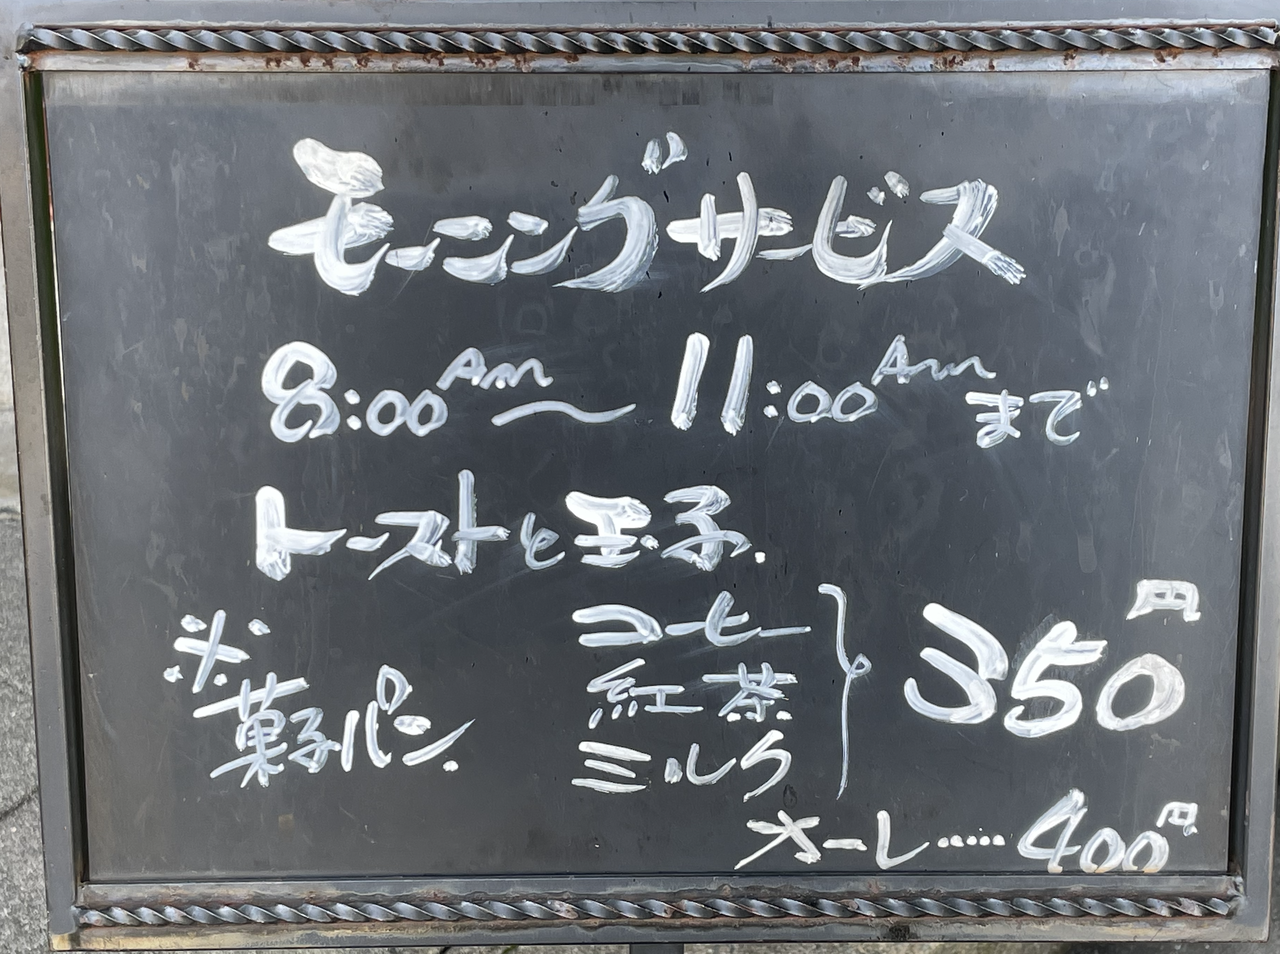 モーニングサービス
8:00Am〜11:00Amまで
トーストと玉子.
※菓子パン.
コーヒー
紅茶
ミルク
350円
オーレ……400円